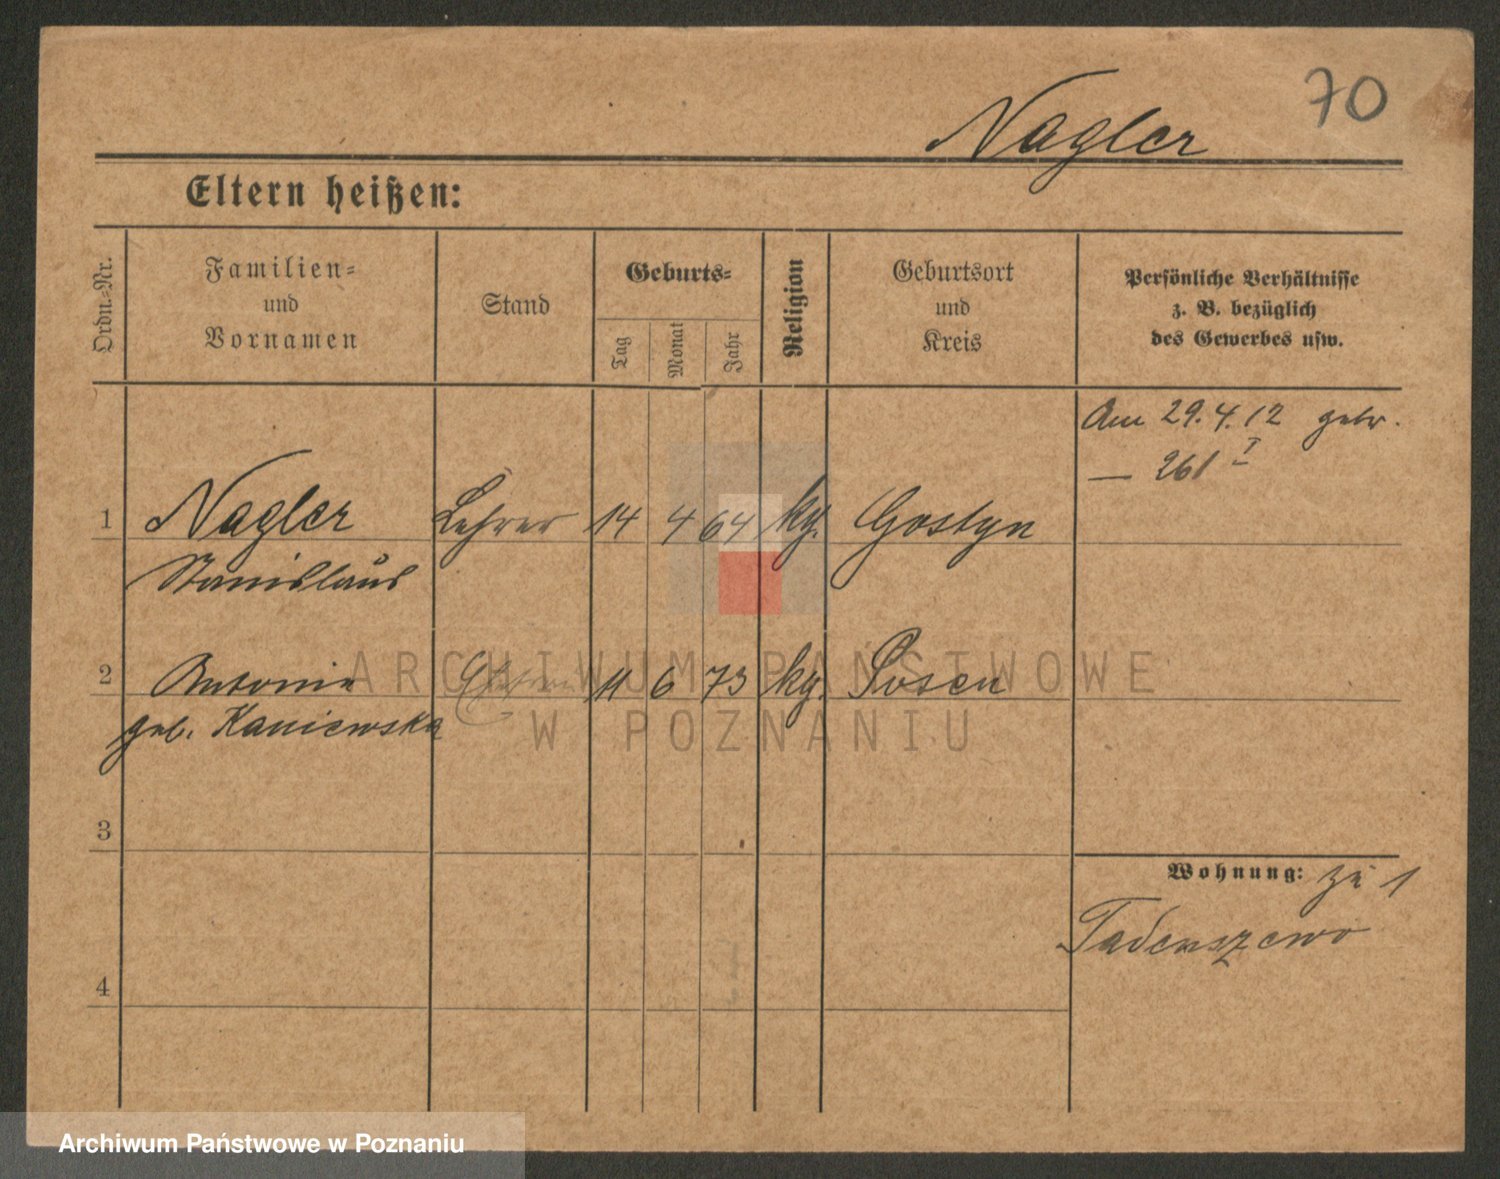 70
Nagler
Eltern heißen:
Ordn.-Nr.
Familien-
und
Vornamen
Stand
Geburts-
Tag
Monat
Jahr
Religion
Geburtsort
und
Kreis
Persönliche Verhältnisse
z. B. bezüglich
des Gewerbes usw.
Am 29.4.12 gebr.
— 261 I
1 Nagler Lehrer 14 4 64 kg. Gostyn
Stanislaus
ARCHIWUM PAŃSTWOWE
W POZNANIU
2 Antonie 11 6 73 kg. Posen
geb. Kaniewska
3
Wohnung: zu 1
Tadeuszewo
4
Archiwum Państwowe w Poznaniu